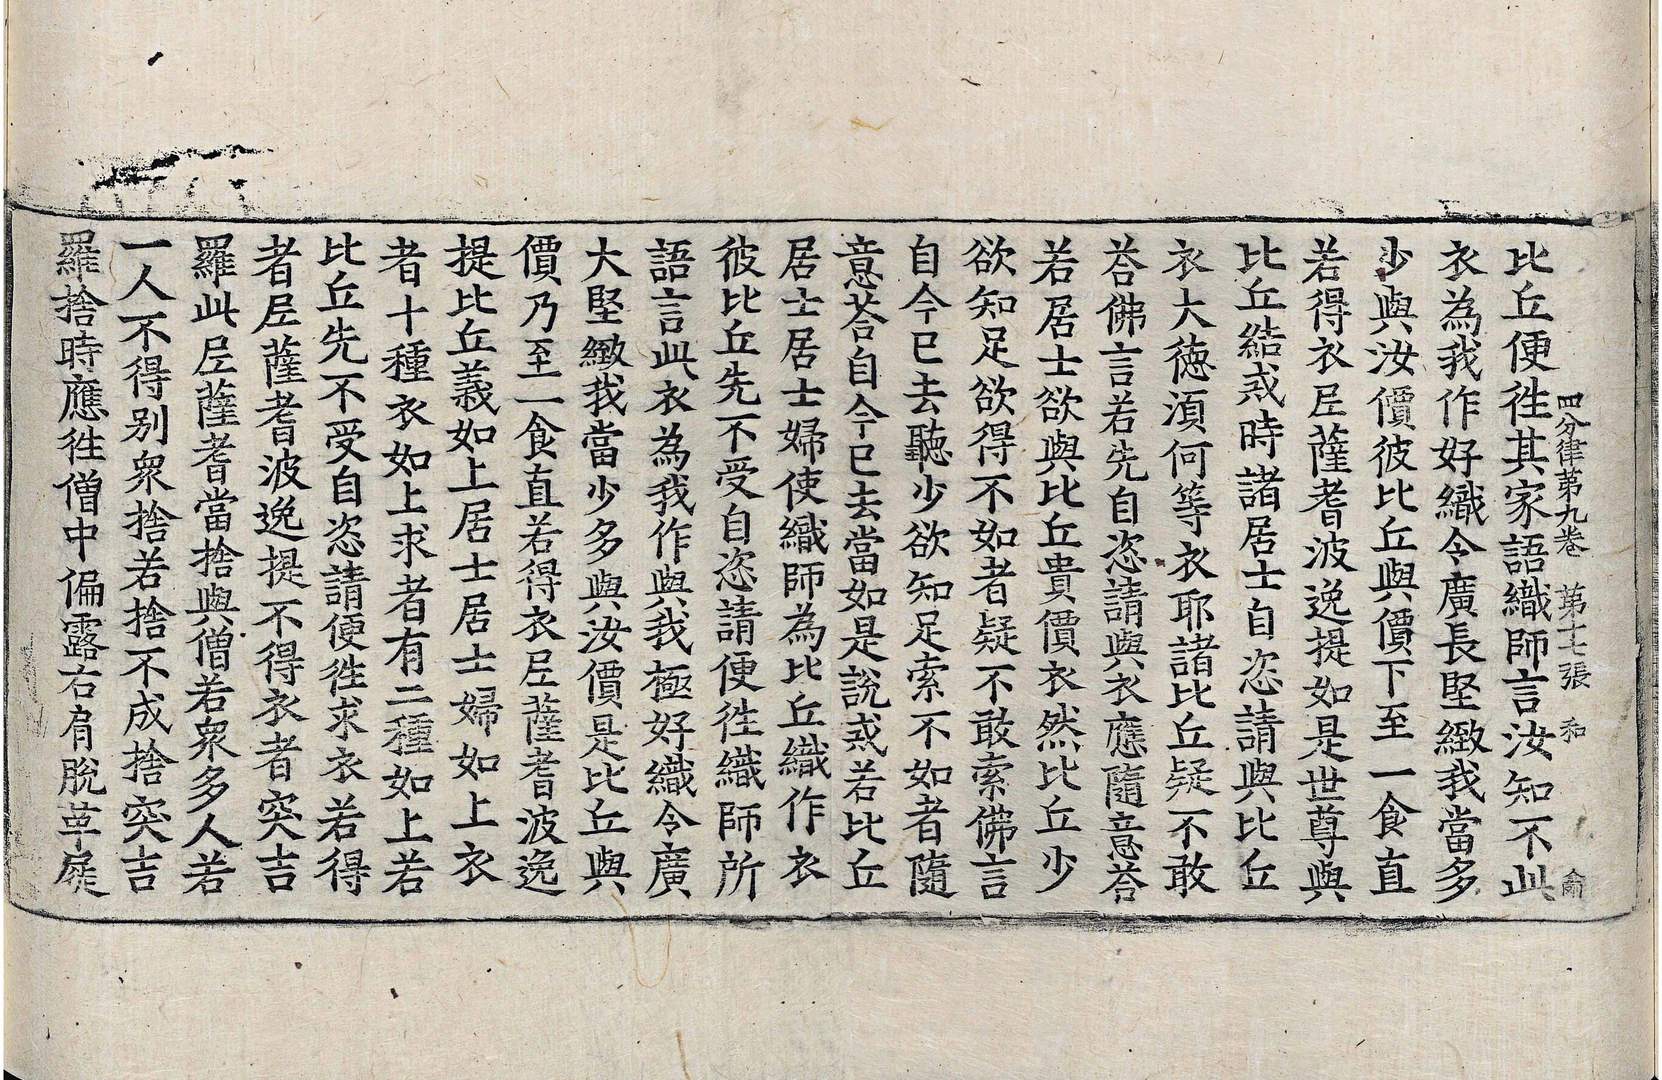 四分律第九卷 第十七張 和 侖
比丘便徃其家語織師言汝知不此
衣為我作好織令廣長堅緻我當多
少與汝價彼比丘與價下至一食直
若得衣尼薩耆波逸提如是世尊與
比丘結戒時諸居士自恣請與比丘
衣大德湏何等衣耶諸比丘疑不敢
荅佛言若先自恣請與衣應隨意荅
若居士欲與比丘貴價衣然比丘少
欲知足欲得不如者疑不敢索佛言
自今已去聽少欲知足索不如者隨
意荅自今已去當如是說戒若比丘
居士居士婦使織師為比丘織作衣
彼比丘先不受自恣請便徃織師所
語言此衣為我作與我極好織令廣
大堅緻我當少多與汝價是比丘與
價乃至一食直若得衣尼薩耆波逸
提比丘義如上居士居士婦如上衣
者十種衣如上求者有二種如上若
比丘先不受自恣請便徃求衣若得
者尼薩耆波逸提不得衣者突吉
羅此尼薩耆當捨與僧若衆多人若
一人不得别衆捨若捨不成捨突吉
羅捨時應徃僧中偏露右肩脫革屣